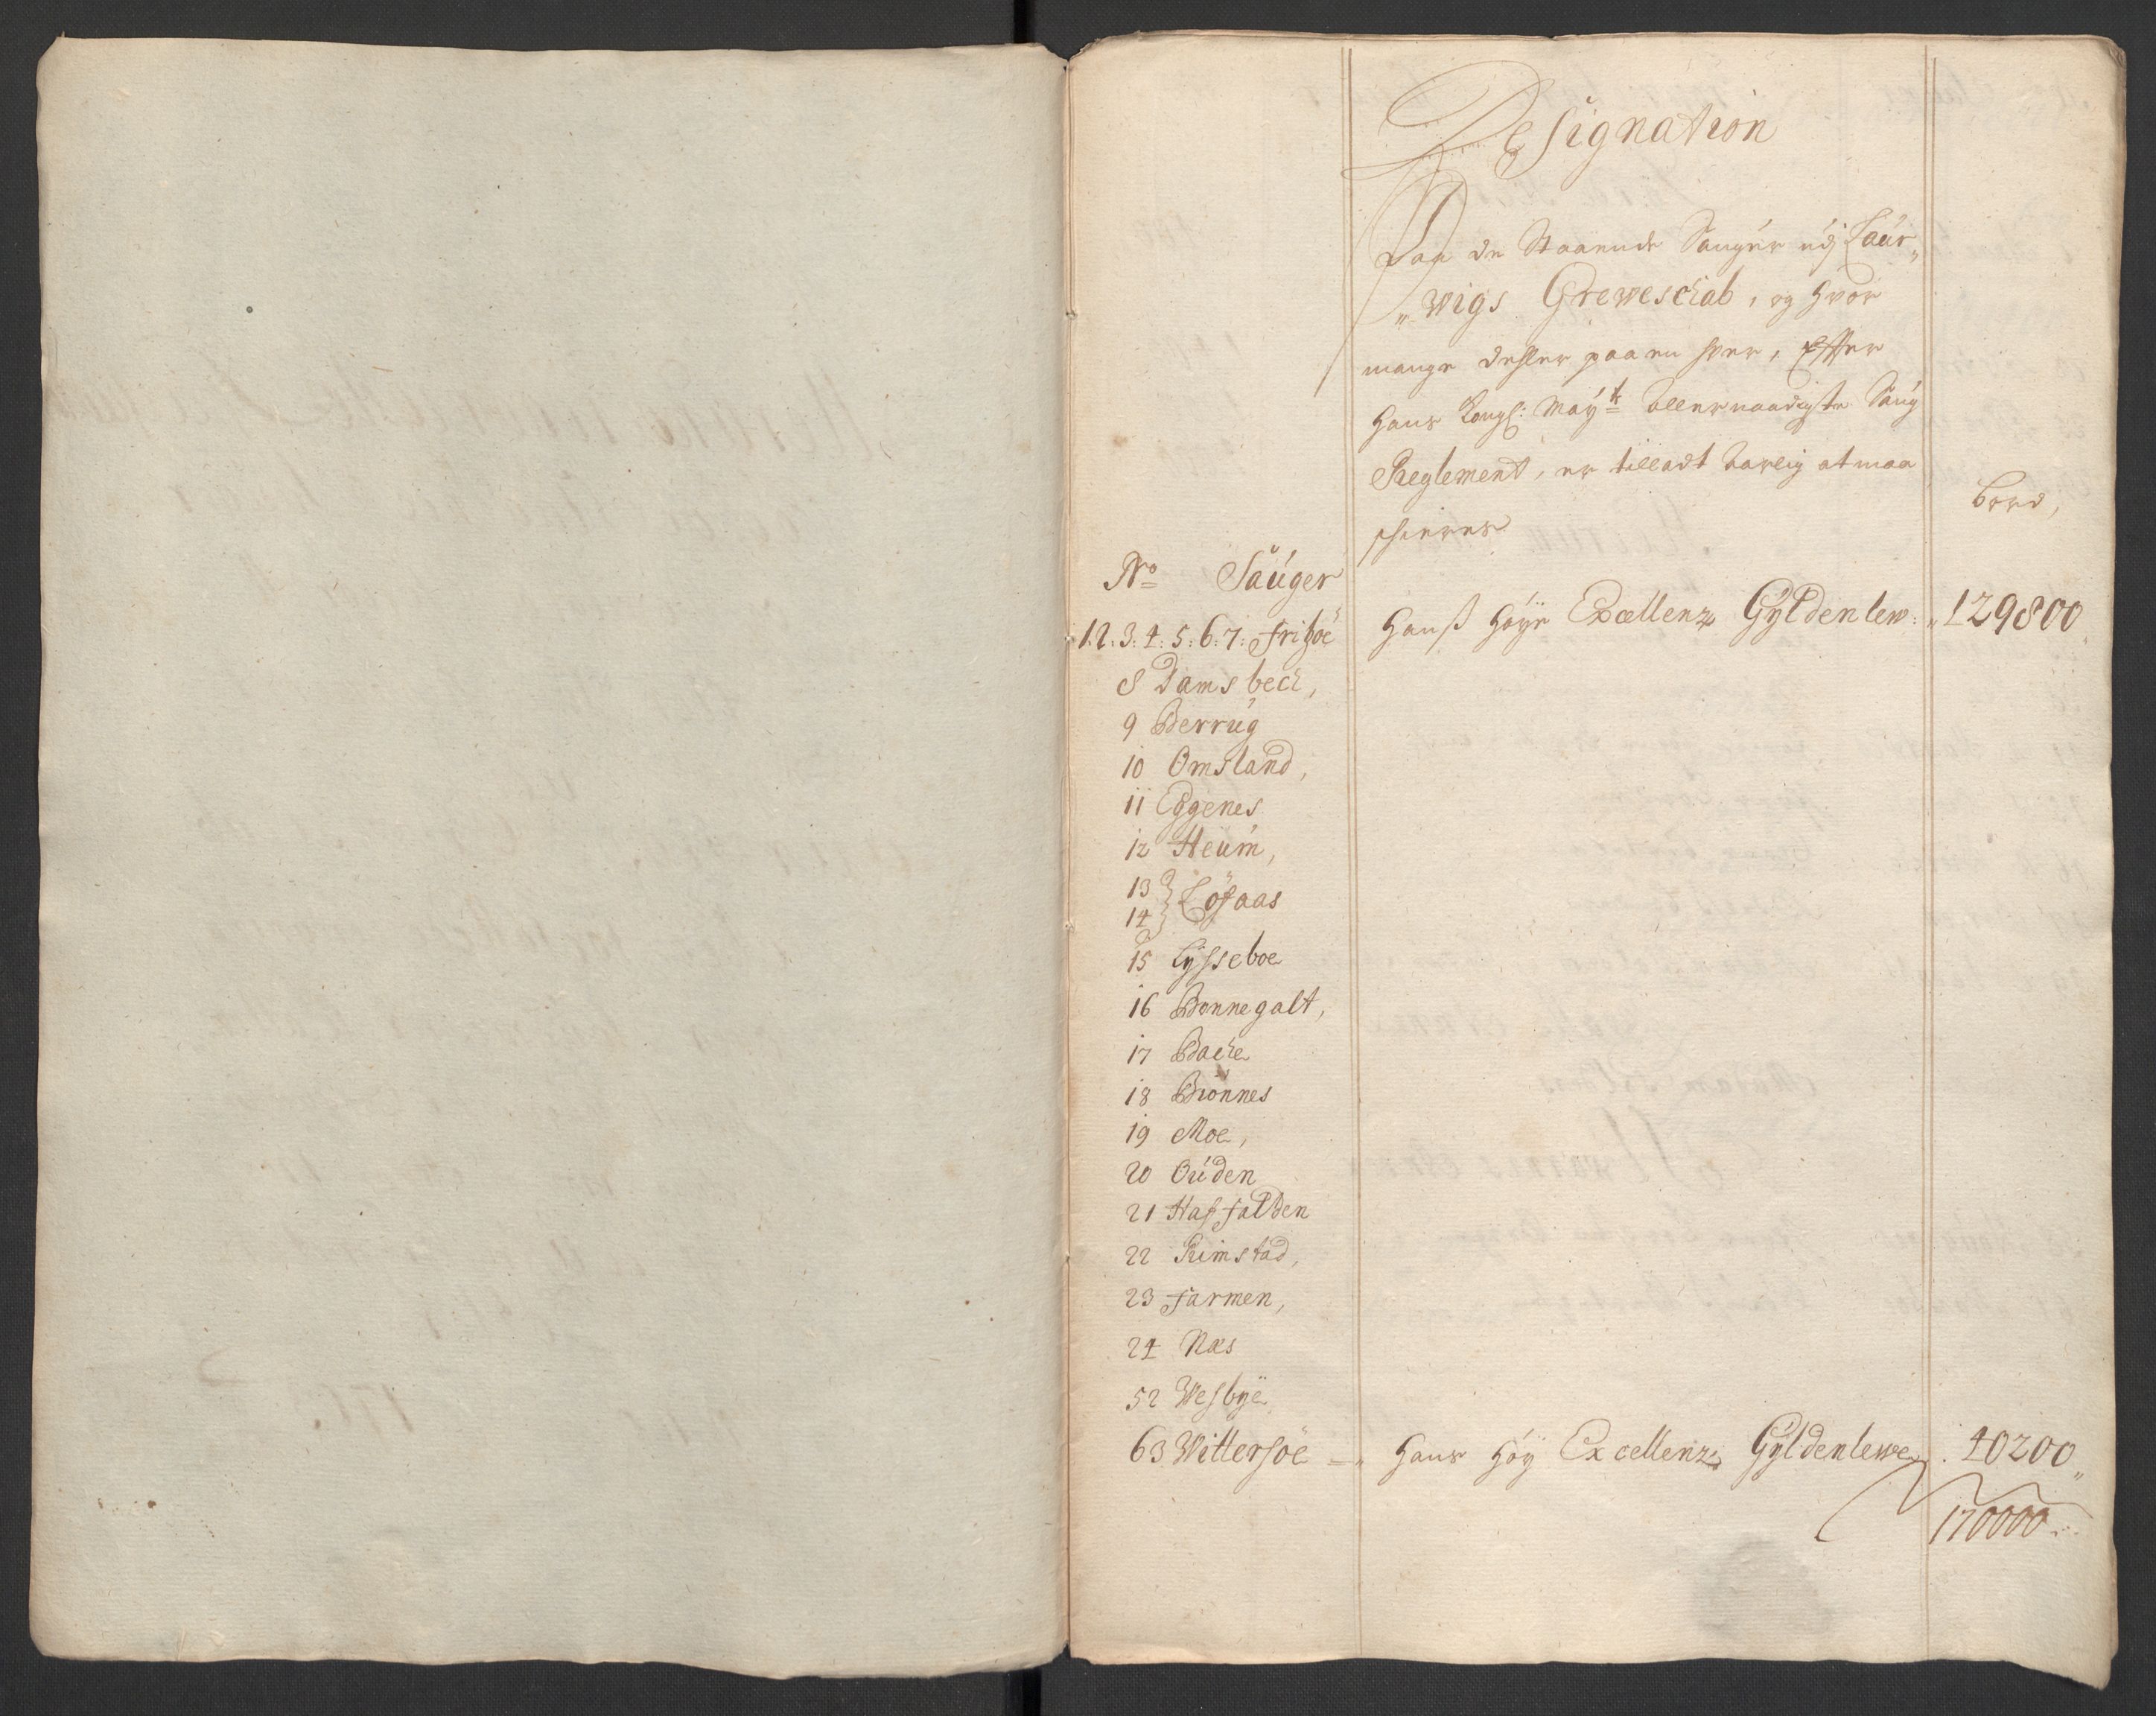 Designation
Paa de Staaende Sauger udj Laur„
„wigs Greweschab, og hvor
mange dehler paa en hver, Effter
Hans Kongl: Mayts allernaadigste Saug
Reglement, er tilladt aarlig at maa
schieres
Bord,
No Sauger
1. 2. 3. 4. 5. 6. 7. Fritzöe Hanß Höye Excellenz Gyldenlew: „129800
8 Damsbech,
9 Berrug
10 Omsland,
11 Eggenes
12 Heum,
13
14 Löfaas
15 Lysseboe
16 Bonnegalt,
17 Bache
18 Brönnes
19 Moe,
20 Ouden
21 Hafsfalden
22 Rimstad,
23 Farmen,
24 Næs
52 Wesbye
63 Wittersöe Hans Höy Excellenz Gyldenlewe 40200„
170000